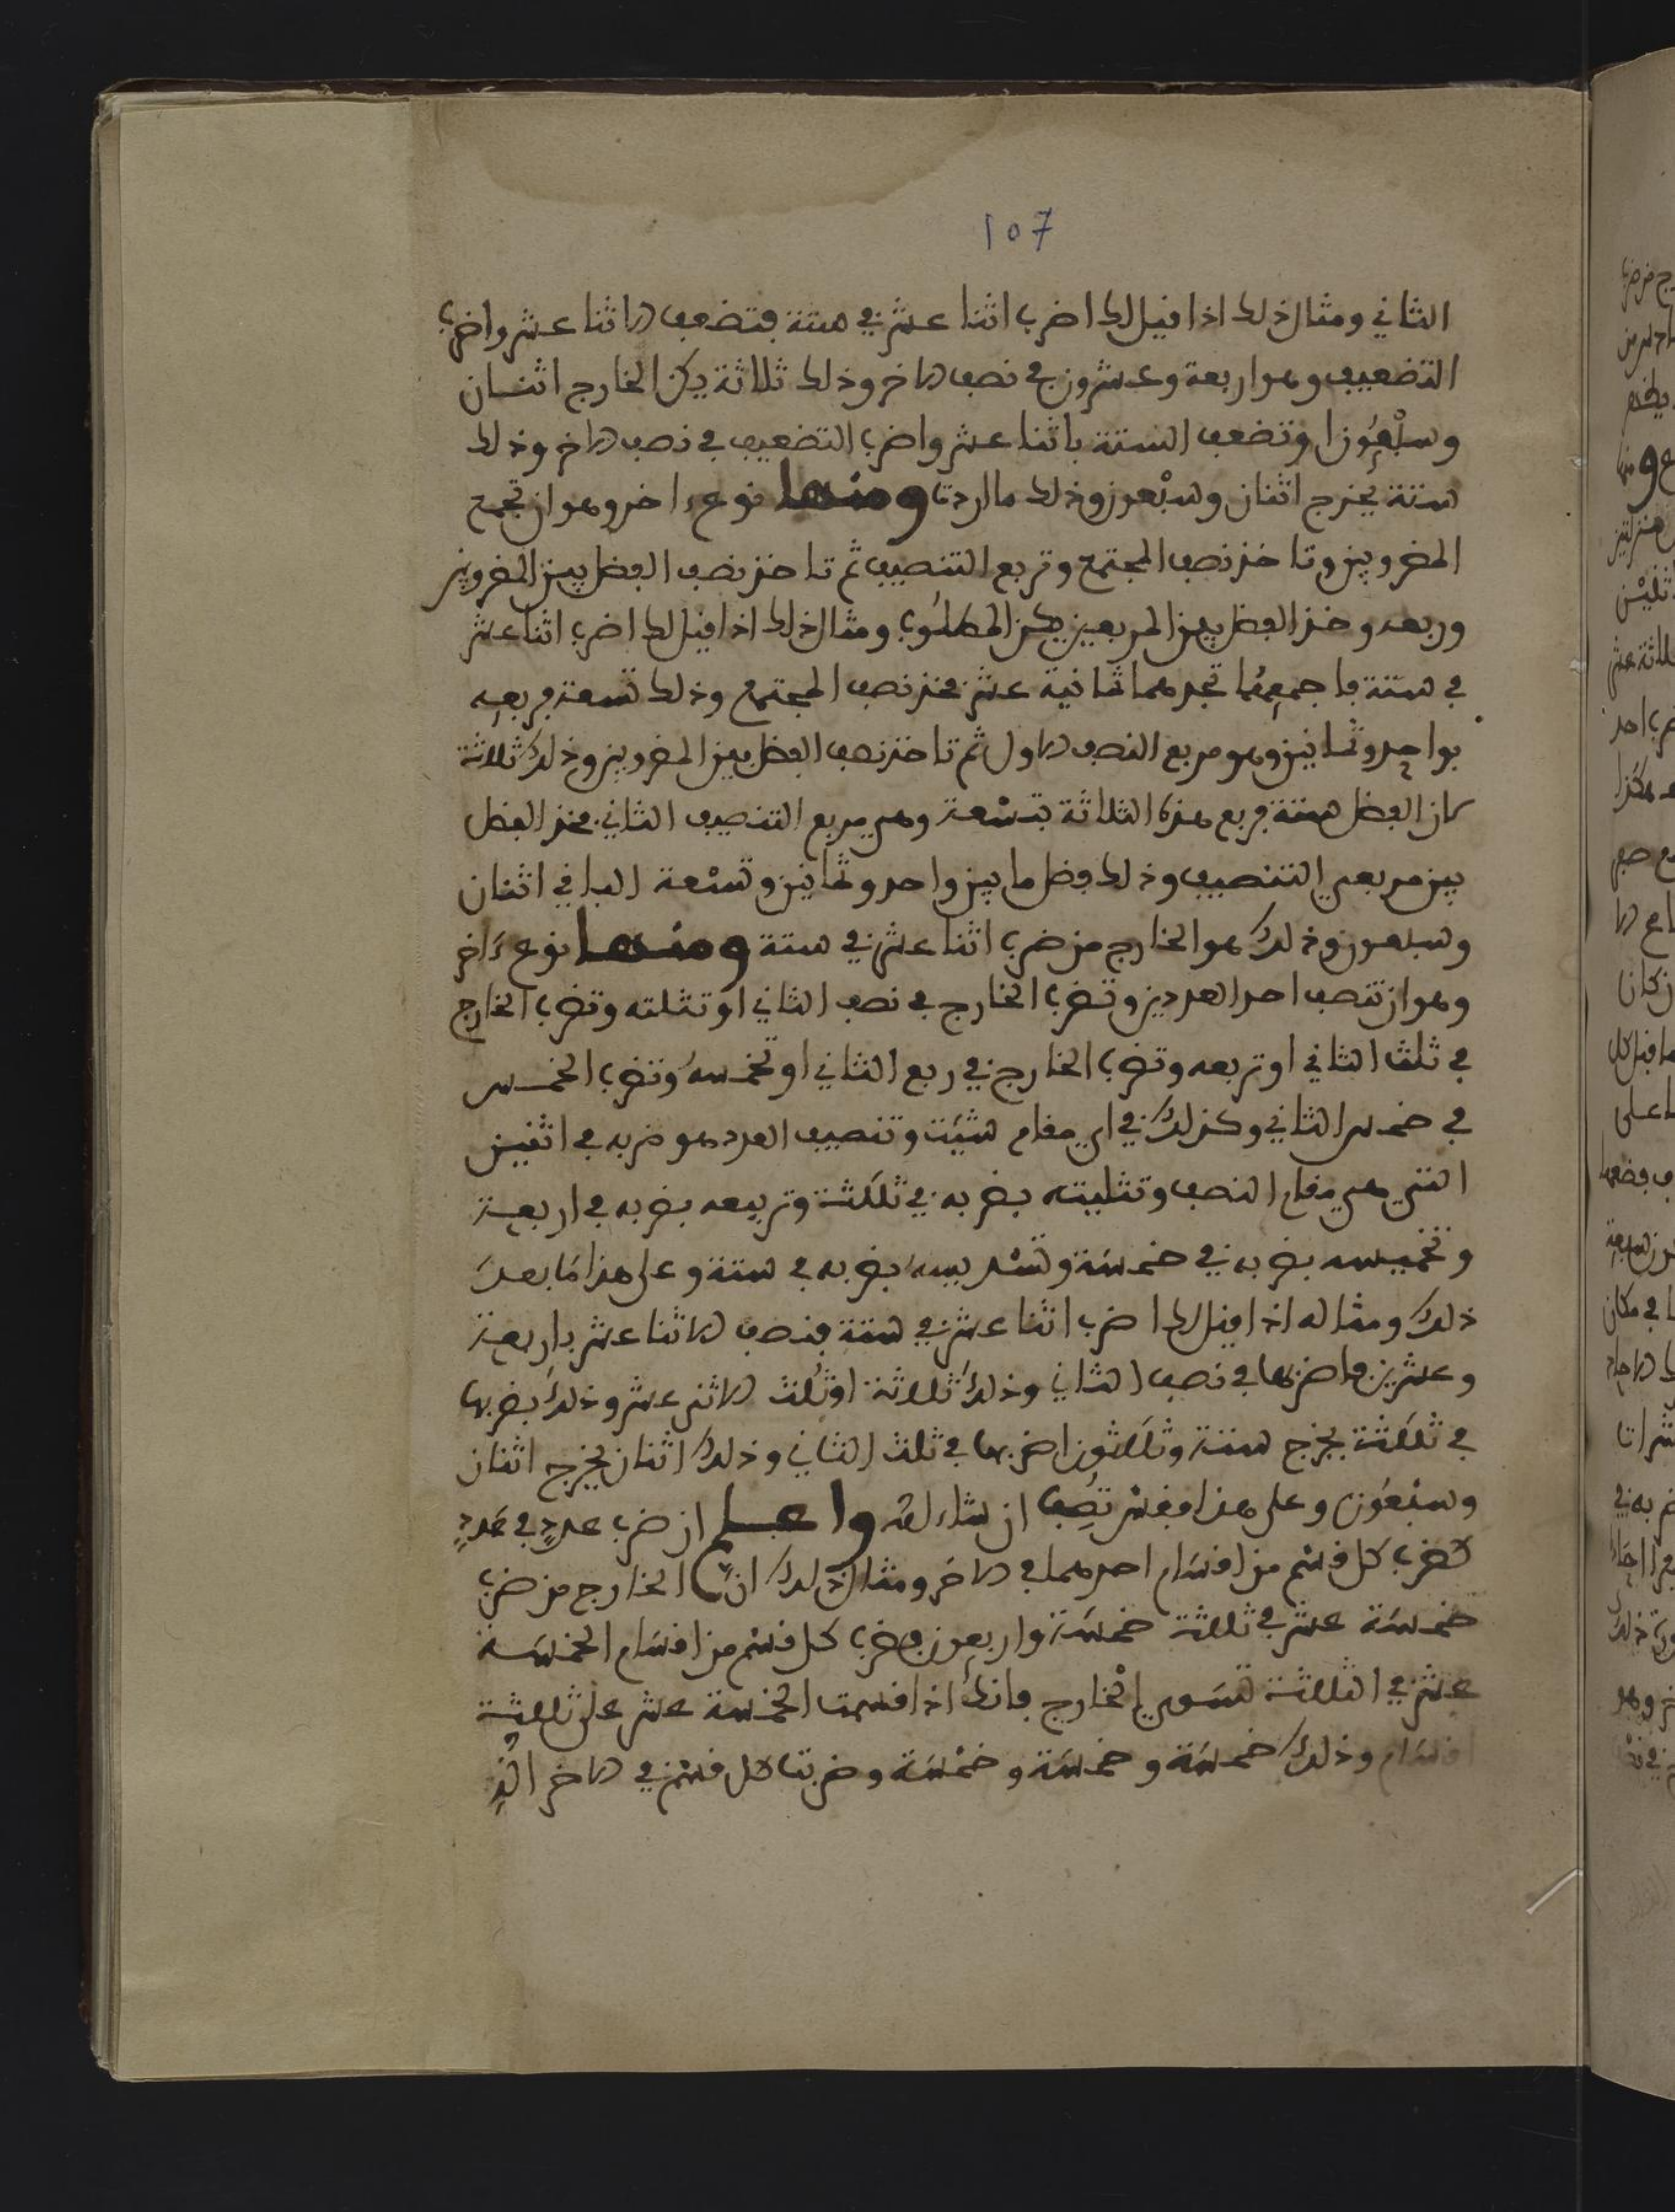 107
الثاني ومثال ذلك اذا قيل لك اضرب اثنا عشر في ستة فتضعف الاثنا عشر واضرب
التضعيف وهو اربعة وعشرون في نصف الاخر وذلك ثلاثة يكن الخارج اثنان
وسبعون او تضعف الستة باثنا عشر واضرب التضعيف في نصف الاخر وذلك
ستة يخرج اثنان وسبعون وذلك ما اردت ومنها نوع ءاخر وهو ان تجمع
المضروبين وتاخذ نصف المجتمع وتربع التنصيف ثم تاخذ نصف الفضل بين المضروبين
وربعه وخذ الفضل بين المربعين يكن المطلوب ومثال ذلك اذا قيل لك اضرب اثنا عشر
في ستة فاجمعهما تجدهما ثمانية عشر فخذ نصف المجتمع وذلك تسعة فربعه
بواحد وثمانين وهو مربع النصف الاول ثم تاخذ نصف الفضل بين المضروبين وذلك ثلاثة
كان الفضل ستة فربع هذه الثلاثة بتسعة وهي مربع التنصيف الثاني فخذ الفضل
بين مربعي التنصيف وذلك فضل ما بين واحد وثمانين وتسعة الباقي اثنان
وسبعون وذلك هو الخارج من ضرب اثنا عشر في ستة ومنها نوع ءاخر
وهو ان تنصف احد العددين وتضرب الخارج في نصف الثاني او تثلثه وتضرب الخارج
في ثلث الثاني او تربعه وتضرب الخارج في ربع الثاني او تخمسه وتضرب الخمس
في خمس الثاني وكذلك في اي مقام شئت وتنصيف العدد هو ضربه في اثنين
التي هي مقام النصف وتثليثه بضربه في ثلثة وتربيعه بضربه في اربعة
وتخميسه بضربه في خمسة وتسديسه بضربه في ستة وعلى هذا ما بعد
ذلك ومثاله اذا قيل لك اضرب اثنا عشر في ستة فنصف الاثنا عشر باربعة
وعشرين فاضربها في نصف الثاني وذلك ثلاثة او ثلث الاثنى عشر وذلك بضربها
في ثلثة يخرج ستة وثلثون اضربها في ثلث الثاني وذلك اثنان يخرج اثنان
وسبعون وعلى هذا فقس تصب ان شاء الله واعلم ان ضرب عدد في عدد
كضرب كل قسم من اقسام احدهما في الاخر ومثال ذلك ان الخارج من ضرب
خمسة عشر في ثلثة خمسة واربعون فضرب كل قسم من اقسام الخمسة
عشر في الثلثة تسوي الخارج فانك اذا قسمت الخمسة عشر على ثلثة
اقسام وذلك خمسة وخمسة وخمسة وضربت كل قسم في الاخر الذ